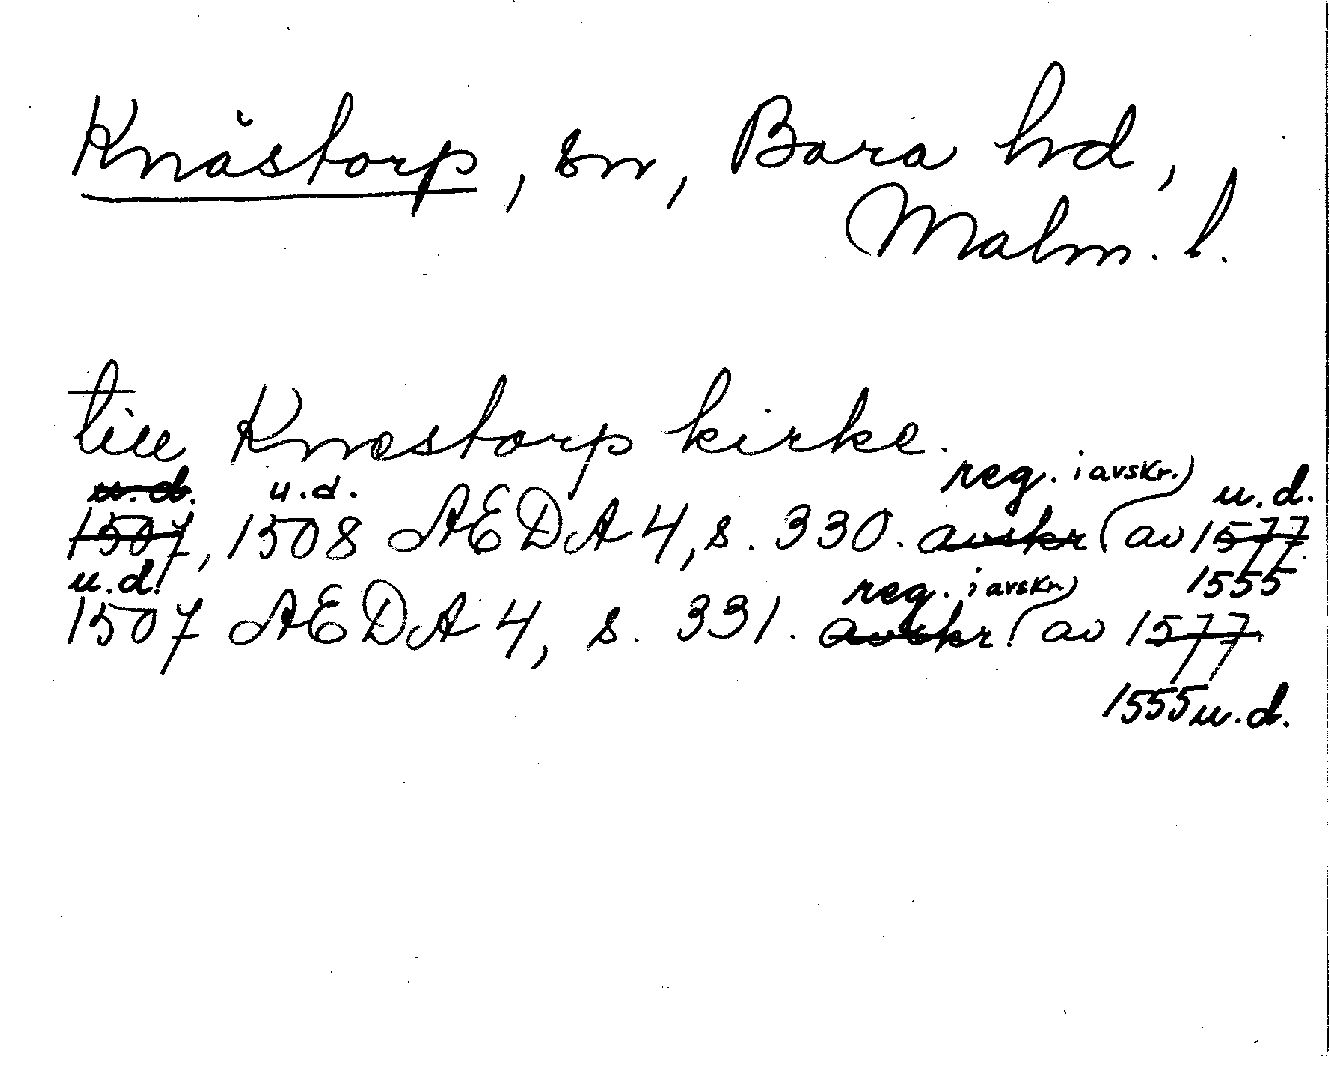 Knästorp, sn, Bara hd,
Malm. l.
till Knæstorp kirke.
u.d. u.d. reg. i avskr.) u.d.
1507, 1508 AEDA 4, s. 330. avskr ( av 1577
u.d. reg. i avskr.) 1555
1507 AEDA 4, s. 331. avskr. ( av 1577
1555 u.d.